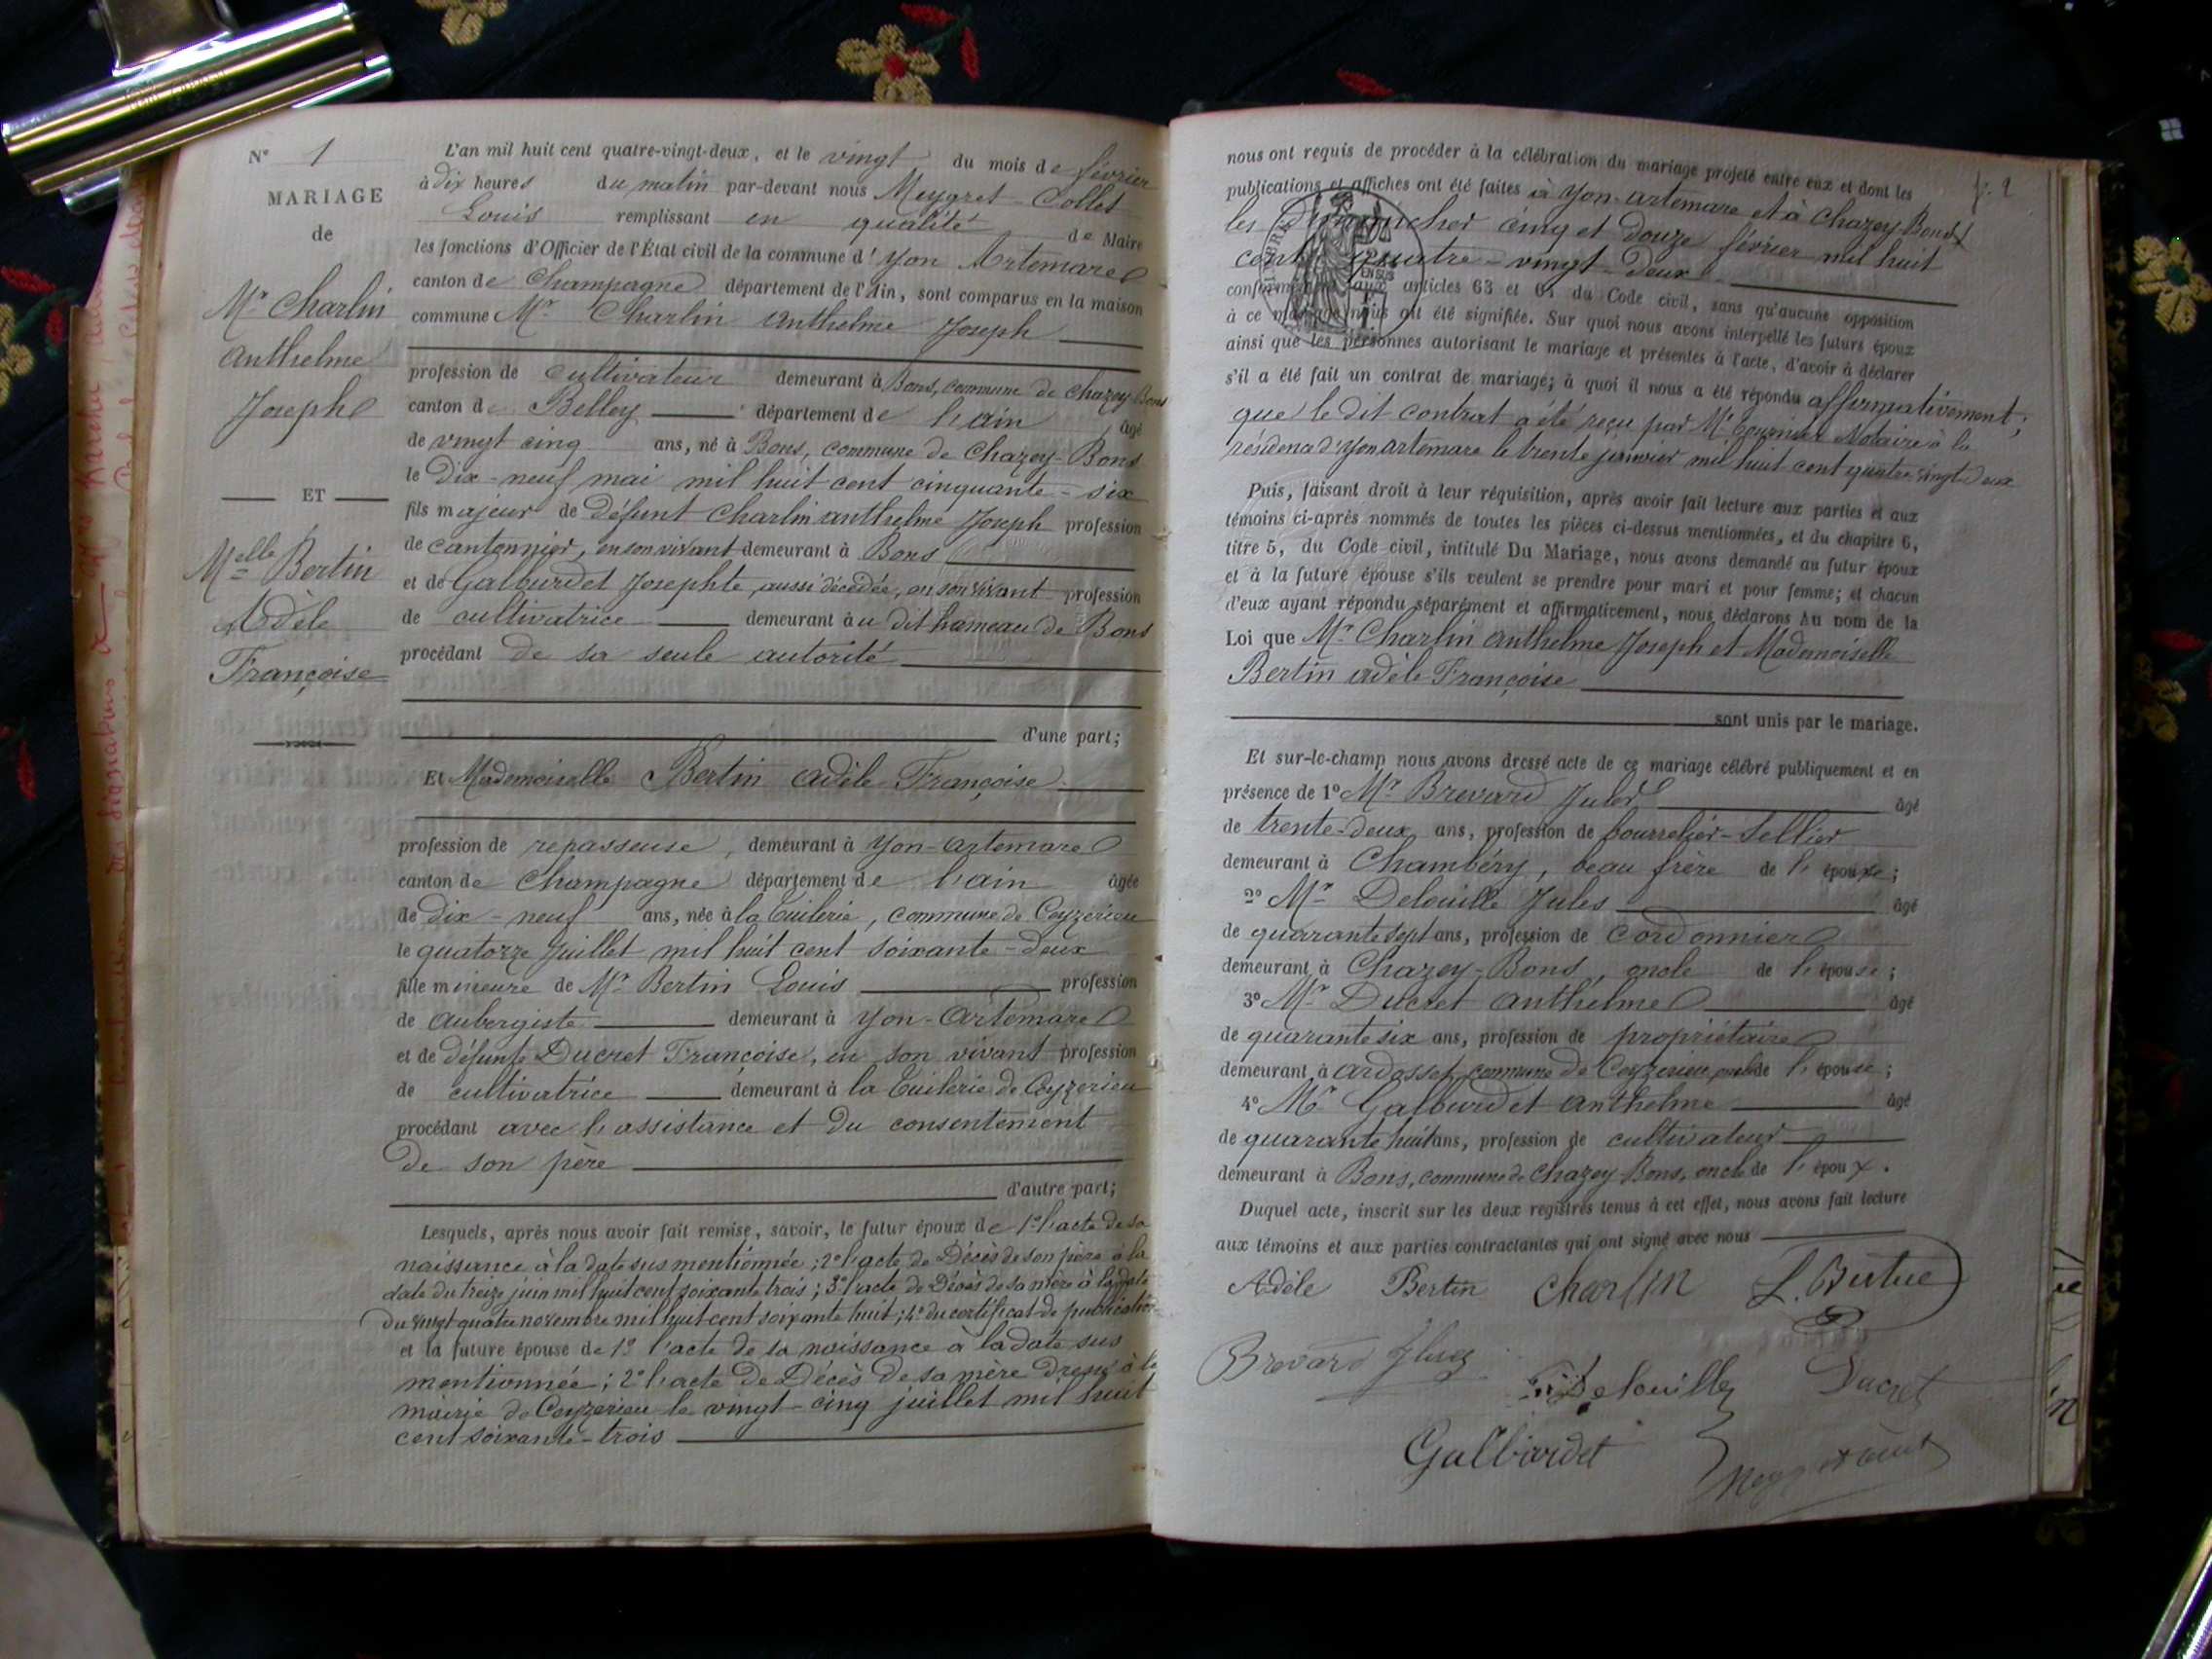 N° 1
MARIAGE
de
Mr Charlin
Anthelme
Joseph
ET
Melle Bertin
Adèle
Françoise
L'an mil huit cent quatre-vingt-deux, et le vingt du mois de février
à dix heures du matin par-devant nous Meygret-Collet
Louis remplissant en qualité de Maire
les fonctions d'Officier de l'État civil de la commune d'Yon Artemare
canton de Champagne département de l'Ain, sont comparus en la maison
commune Mr Charlin Anthelme Joseph
profession de cultivateur demeurant à Bons, commune de Chazey-Bons
canton de Belley département de l'ain âgé
de vingt cinq ans, né à Bons, commune de Chazey-Bons
le dix-neuf mai mil huit cent cinquante-six
fils majeur de défunt Charlin anthelme Joseph profession
de cantonnier, en son vivant demeurant à Bons
et de Galburdet Josephte, aussi décédée, en son vivant profession
de cultivatrice demeurant au dit hameau de Bons
procédant de sa seule autorité
d'une part;
Et Mademoiselle Bertin adèle Françoise
profession de repasseuse, demeurant à Yon-Artemare
canton de Champagne département de l'ain âgée
de dix-neuf ans, née à la Tuilerie, commune de Ceyzerieu
le quatorze Juillet mil huit cent soixante-deux
fille mineure de Mr Bertin Louis profession
de aubergiste demeurant à Yon-Artemare
et de défunte Ducret Françoise, en son vivant profession
de cultivatrice demeurant à la Tuilerie de Ceyzerieu
procédant avec l'assistance et du consentement
de son père
d'autre part;
Lesquels, après nous avoir fait remise, savoir, le futur époux de 1° l'acte de sa
naissance à la date sus mentionnée; 2° l'acte de Décès de son père à la
date du treize juin mil huit cent soixante trois; 3° l'acte de Décès de sa mère à la date
du vingt quatre novembre mil huit cent soixante huit; 4° du certificat de publication
et la future épouse de 1° l'acte de sa naissance à la date sus
mentionnée; 2° l'acte de Décès de sa mère dressé à la
mairie de Ceyzerieu le vingt-cinq juillet mil huit
cent soixante-trois
f. 2
nous ont requis de procéder à la célébration du mariage projeté entre eux et dont les
publications et affiches ont été faites à Yon-artemare et à Chazey-Bons
les Dimanches cinq et douze février mil huit
cent quatre-vingt-deux
conformément aux articles 63 et 64 du Code civil, sans qu'aucune opposition
à ce mariage nous ait été signifiée. Sur quoi nous avons interpellé les futurs époux
ainsi que les personnes autorisant le mariage et présentes à l'acte, d'avoir à déclarer
s'il a été fait un contrat de mariage; à quoi il nous a été répondu affirmativement;
que le dit contrat a été reçu par Me Notaire à la
résidence d'Yon artemare le trente janvier mil huit cent quatre-vingt-deux
Puis, faisant droit à leur réquisition, après avoir fait lecture aux parties et aux
témoins ci-après nommés de toutes les pièces ci-dessus mentionnées, et du chapitre 6,
titre 5, du Code civil, intitulé Du Mariage, nous avons demandé au futur époux
et à la future épouse s'ils veulent se prendre pour mari et pour femme; et chacun
d'eux ayant répondu séparément et affirmativement, nous déclarons au nom de la
Loi que Mr Charlin anthelme Joseph et Mademoiselle
Bertin adèle Françoise
sont unis par le mariage.
Et sur-le-champ nous avons dressé acte de ce mariage célébré publiquement et en
présence de 1° Mr Brevard Jules âgé
de trente-deux ans, profession de bourrelier-Sellier
demeurant à Chambéry, beau frère de l'épouse;
2° Mr Delouille Jules âgé
de quarante sept ans, profession de cordonnier
demeurant à Chazey-Bons, oncle de l'épouse;
3° Mr Ducret anthelme âgé
de quarante six ans, profession de propriétaire
demeurant à ardosset, commune de Ceyzerieu, oncle de l'épouse;
4° Mr Galburdet anthelme âgé
de quarante huit ans, profession de cultivateur
demeurant à Bons, commune de Chazey-Bons, oncle de l'époux.
Duquel acte, inscrit sur les deux registres tenus à cet effet, nous avons fait lecture
aux témoins et aux parties contractantes qui ont signé avec nous
Adèle Bertin Charlin
Brevard Delouille Ducret
Galburdet